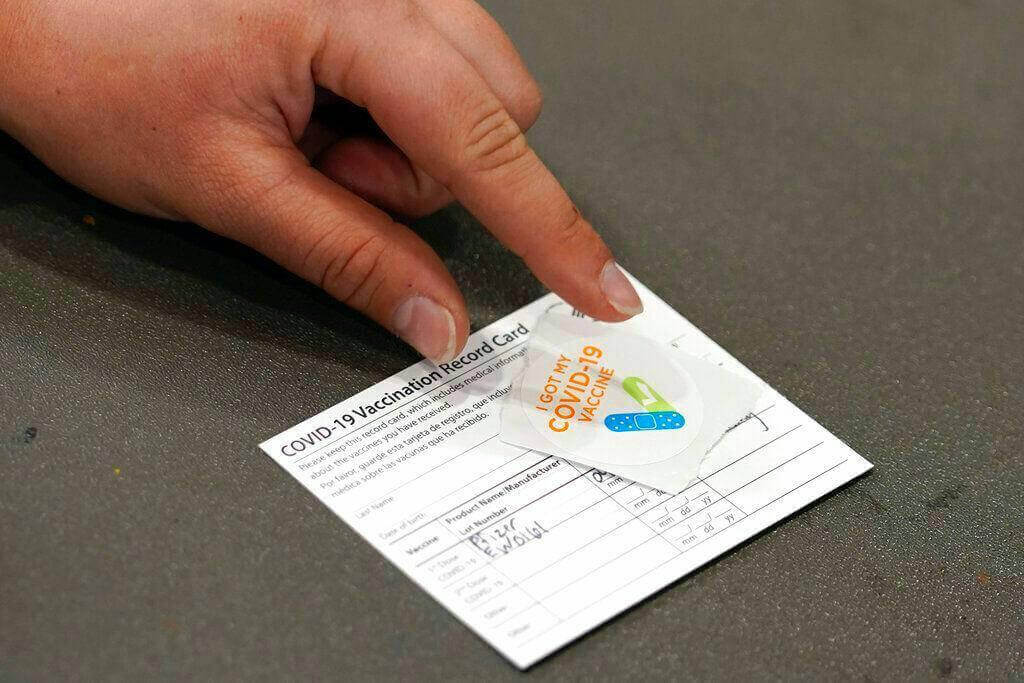 COVID-19 Vaccination Record Card
Please keep this record card, which includes medical
about the vaccines you have received.
Por favor, guarde esta tarjeta de registro, que
médica sobre las vacunas que ha recibido.
I GOT MY
COVID-19
VACCINE
Last Name
Date of birth
Vaccine
Product Name/Manufacturer
Lot Number
1st Dose
COVID-19
Pfizer
mm dd
2nd Dose
COVID-19
mm dd yy
Other
mm dd yy
Other